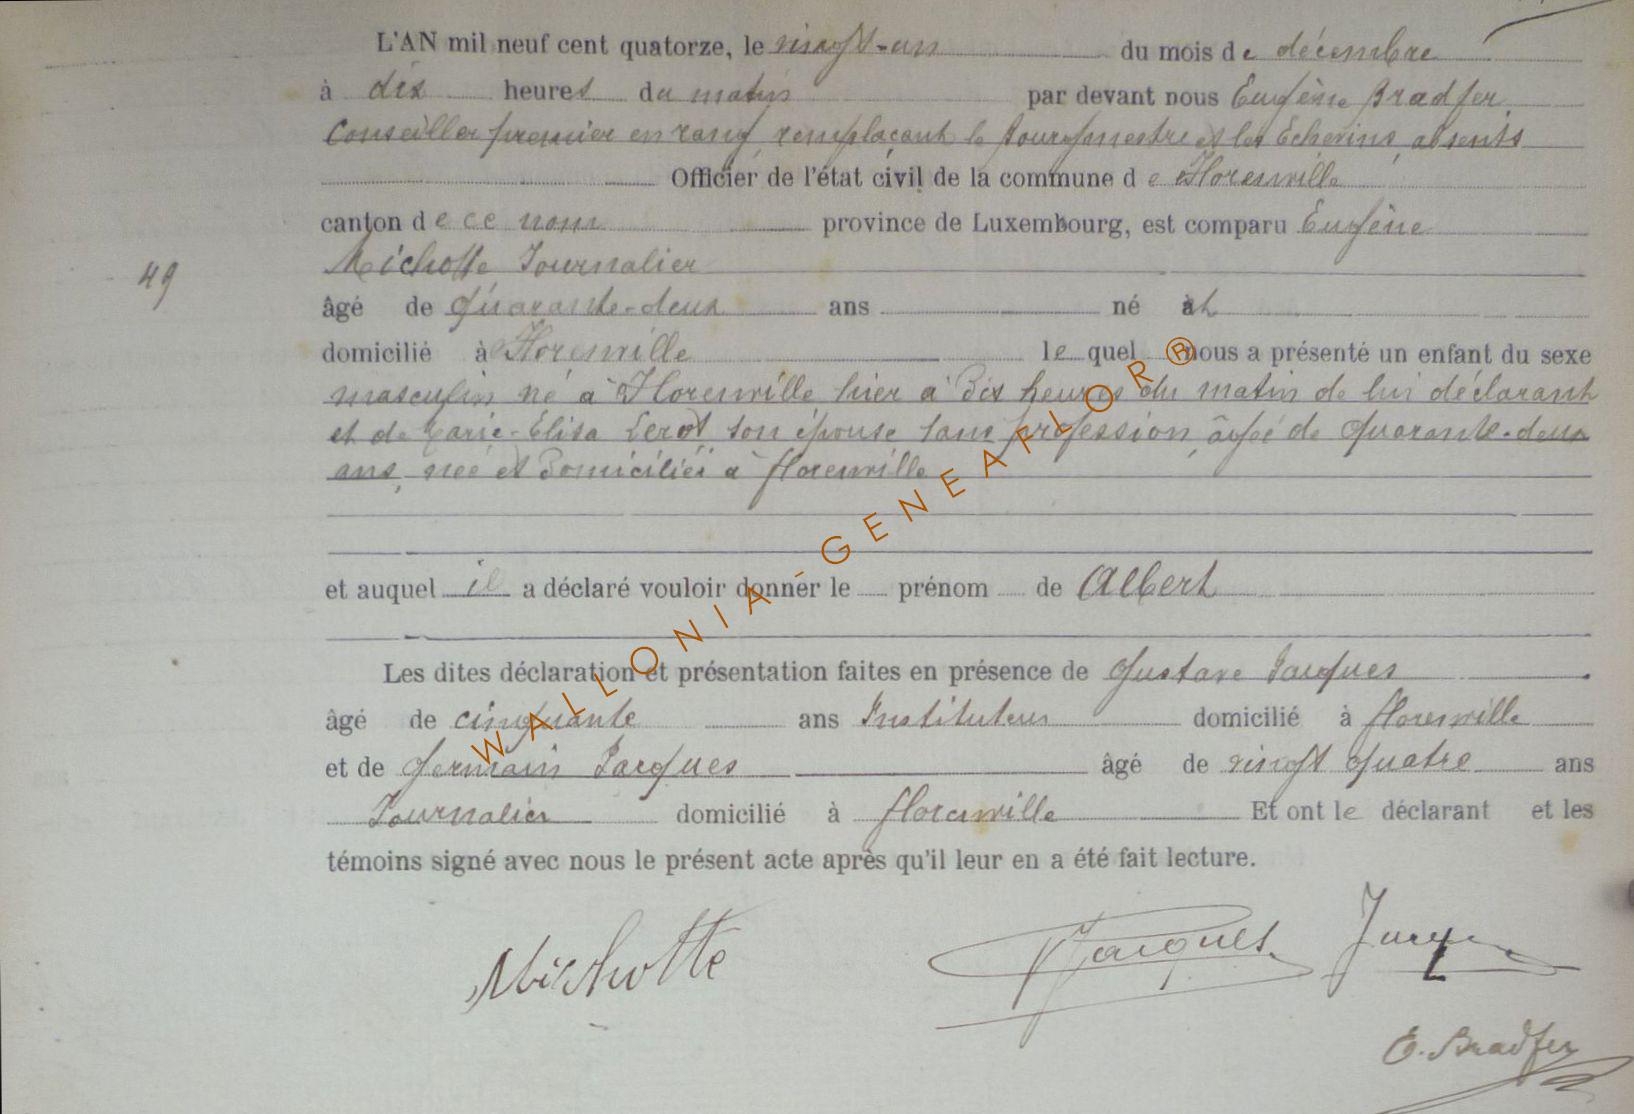 L'AN mil neuf cent quatorze, le vingt-un du mois de décembre
à dix heures du matin par devant nous Eugène Bradfer
Conseiller premier en rang, remplaçant le Bourgmestre et les Echevins, absents
Officier de l'état civil de la commune de Florenville
canton de ce nom province de Luxembourg, est comparu Eugène
Michotte Journalier
49
âgé de quarante-deux ans né et
domicilié à Florenville lequel nous a présenté un enfant du sexe
masculin né à Florenville hier à Dix heures du matin de lui déclarant
et de Marie-Elisa Lerot son épouse sans profession, âgée de quarante-deux
ans, née et Domiciliée à florenville
et auquel il a déclaré vouloir donner le prénom de Albert
Les dites déclaration et présentation faites en présence de Gustave Jacques
âgé de cinquante ans Instituteur domicilié à florenville
et de Germain Jacques âgé de vingt quatre ans
Journalier domicilié à florenville Et ont le déclarant et les
témoins signé avec nous le présent acte après qu'il leur en a été fait lecture.
Michotte Jacques
E. Bradfer
WALLONIA-GENEAFLOR®